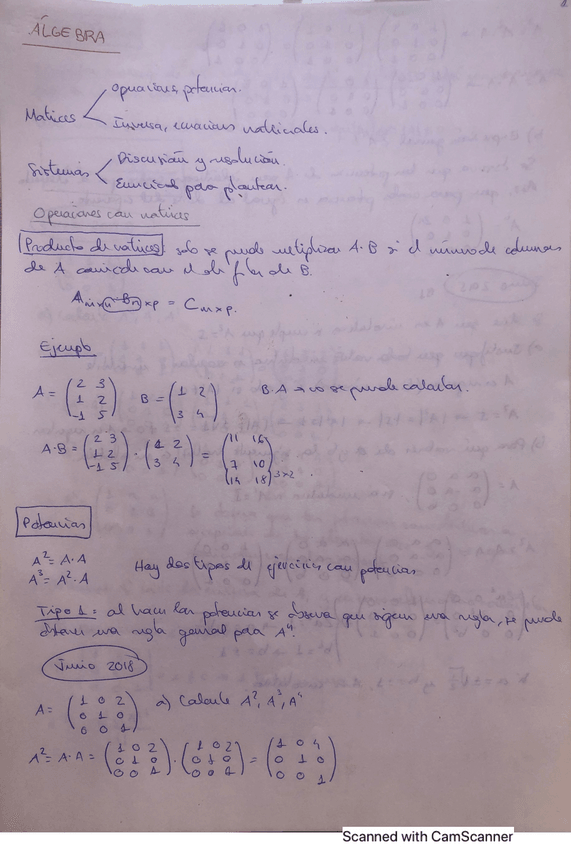 ÁLGEBRA
Matrices
Operaciones, potencias.
Inversa, ecuaciones matriciales.
Sistemas
Discusión y resolución.
Enunciado para plantear.
Operaciones con matrices
Producto de matrices: solo se puede multiplicar A·B si el número de columnas
de A coincide con el de filas de B.
Amxn · Bnxp = Cmxp.
Ejemplo
A = (2 3 / 1 2 / -1 5) B = (1 2 / 3 4) B·A → no se puede calcular.
A·B = (2 3 / 1 2 / -1 5) · (1 2 / 3 4) = (11 16 / 7 10 / 14 18)3x2.
Potencias
A² = A·A
A³ = A²·A
Hay dos tipos de ejercicios con potencias
Tipo 1: al hacer las potencias se observa que siguen una regla, se puede
obtener una regla general para Aⁿ.
Junio 2018
A = (1 0 2 / 0 1 0 / 0 0 1) a) Calcule A², A³, A⁴
A² = A·A = (1 0 2 / 0 1 0 / 0 0 1) · (1 0 2 / 0 1 0 / 0 0 1) = (1 0 4 / 0 1 0 / 0 0 1)
Scanned with CamScanner